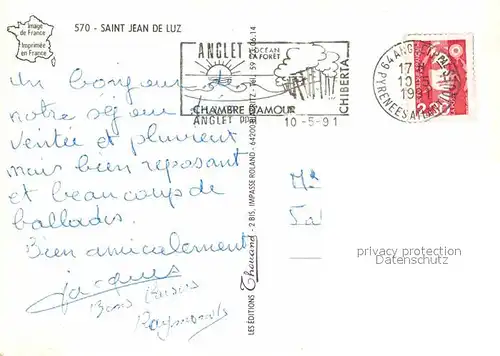 Image
de France
Imprimée
en France
570 - SAINT JEAN DE LUZ
Un bonjour de
notre séjour
Ventée et pluvieux
mais bien reposant
et beaucoup de
ballades.
Bien amicalement
Jacques
Bons Baisers
Raymonde
ANGLET
OCEAN
LA FORÊT
CHIBERTA
CHAMBRE D'AMOUR
ANGLET PPAL
10-5-91
64 ANGLET PPAL
17
10-5
1991
PYRENEES ATLANT.
LES ÉDITIONS Thouand - 2 BIS, IMPASSE ROLAND - 64200
privacy protection
Datenschutz